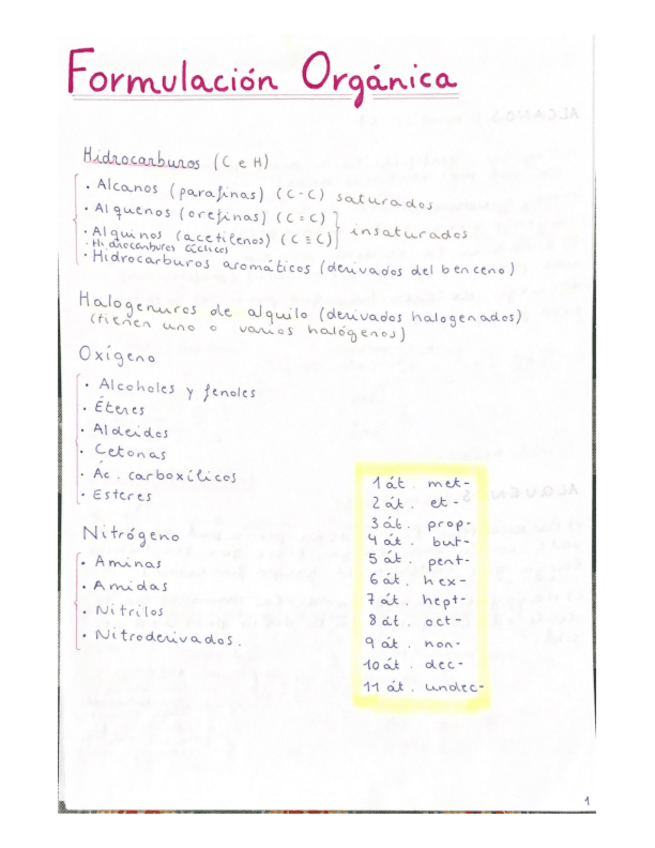 Formulación Orgánica
Hidrocarburos (C e H)
· Alcanos (parafinas) (C-C) saturados
· Alquenos (orefinas) (C=C)
· Alquinos (acetilenos) (C≡C) insaturados
· Hidrocarburos cíclicos
· Hidrocarburos aromáticos (derivados del benceno)
Halogenuros de alquilo (derivados halogenados)
(tienen uno o varios halógenos)
Oxígeno
· Alcoholes y fenoles
· Éteres
· Aldeidos
· Cetonas
· Ác. carboxílicos
· Esteres
Nitrógeno
· Aminas
· Amidas
· Nitrilos
· Nitroderivados.
1 át. met-
2 át. et-
3 át. prop-
4 át. but-
5 át. pent-
6 át. hex-
7 át. hept-
8 át. oct-
9 át. non-
10 át. dec-
11 át. undec-
1